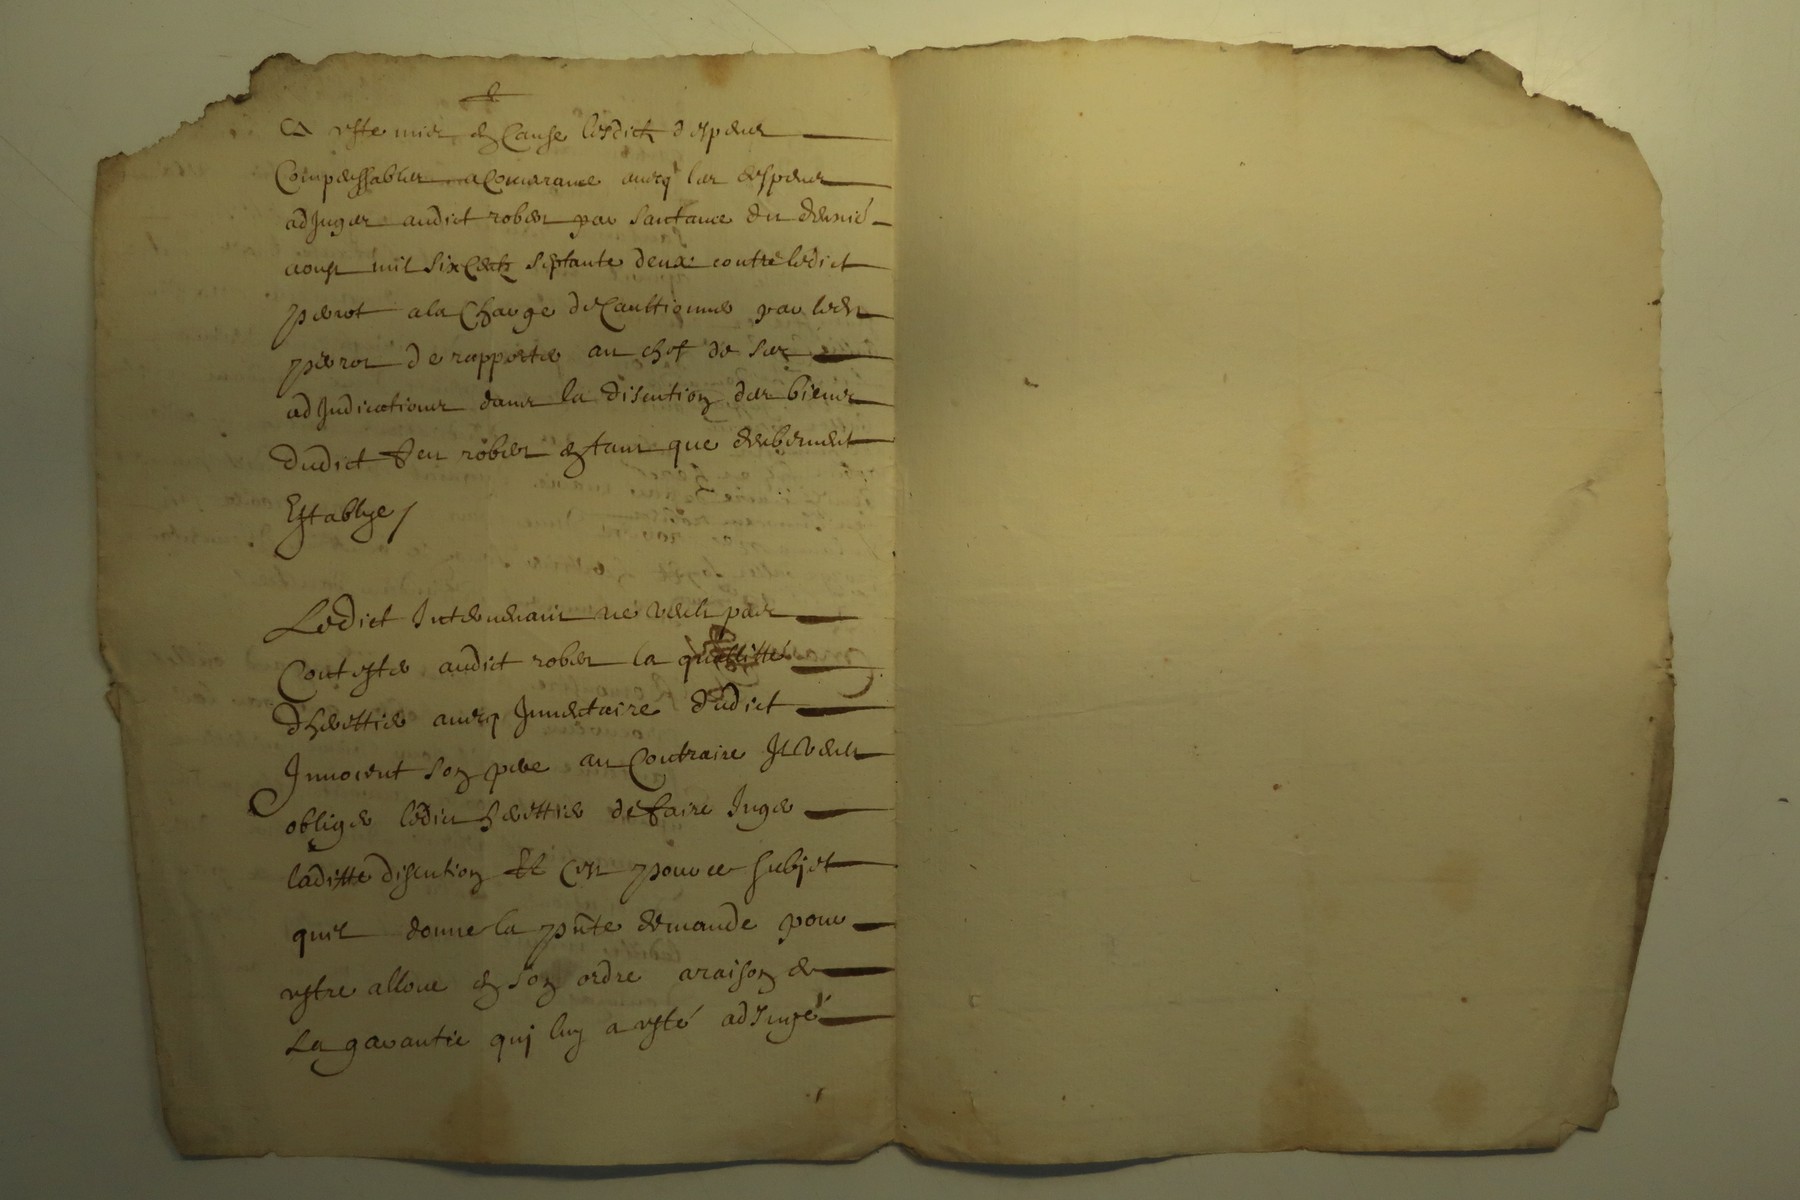 a esté mis en Cause lesdictz despens
Compensables a Concurance avecq les despens
adJuges audict robert par Santance du dernié
aoust mil six Centz septante deux contre ledict
perrot a la Charge de Cautionner par ledit
perrot de rapporter au chef de ses
adJudications dans la disention des biens
dudict feu robert en tant que
Establye /
Ledict Intervenant ne veult pas
Contester audict robert la quallitté
dherittier avecq Inventaire dudict
Innocent son pere au Contraire Il veult
obliger ledict herittier de faire Juger
laditte disention Et cest pour ce subjet
quil donne la pnte demande pour
estre alloue en son ordre a raison de
La garantie quj luy a esté adJugé